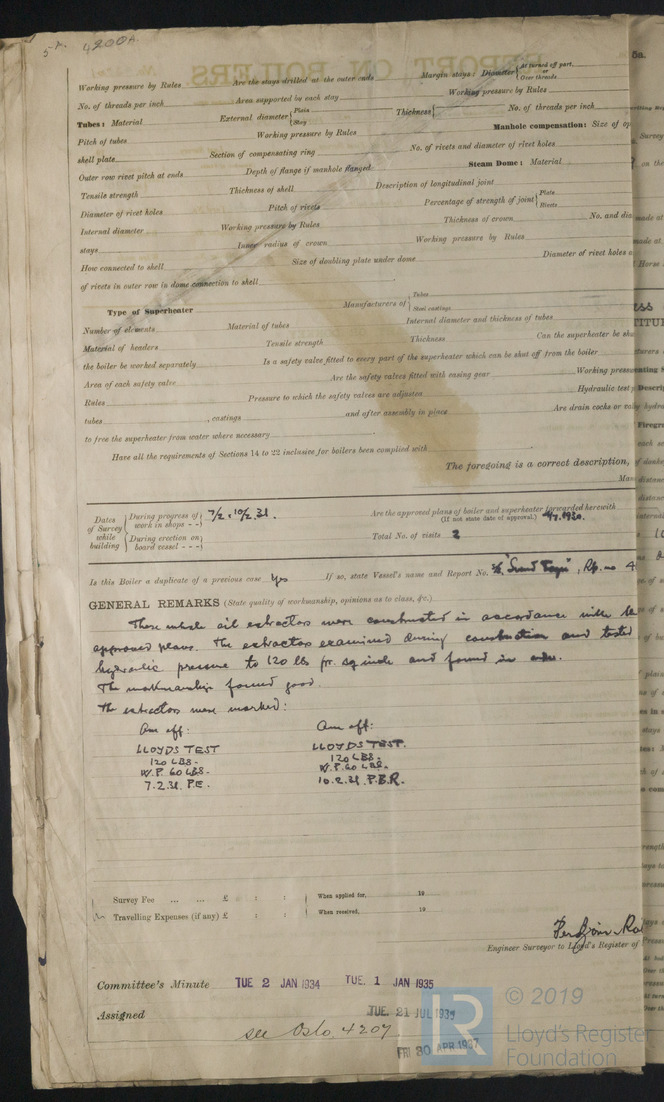 5a. 4200A.
Working pressure by Rules Are the stays drilled at the outer ends Margin stays: Diameter { At turned off part, or Over threads
No. of threads per inch Area supported by each stay Working pressure by Rules
Tubes: Material External diameter { Plain Stay Thickness { No. of threads per inch
Pitch of tubes Working pressure by Rules Manhole compensation: Size of op
shell plate Section of compensating ring No. of rivets and diameter of rivet holes
Outer row rivet pitch at ends Depth of flange if manhole flanged Steam Dome: Material
Tensile strength Thickness of shell Description of longitudinal joint
Diameter of rivet holes Pitch of rivets Percentage of strength of joint { Plate Rivets
Internal diameter Working pressure by Rules Thickness of crown No. and dia
stays Inner radius of crown Working pressure by Rules
How connected to shell Size of doubling plate under dome Diameter of rivet holes a
of rivets in outer row in dome connection to shell
Type of Superheater Manufacturers of { Tubes Steel castings
Number of elements Material of tubes Internal diameter and thickness of tubes
Material of headers Tensile strength Thickness Can the superheater be sh
the boiler be worked separately Is a safety valve fitted to every part of the superheater which can be shut off from the boiler
Area of each safety valve Are the safety valves fitted with easing gear Working press
Rules Pressure to which the safety valves are adjusted Hydraulic test p
tubes , castings and after assembly in place Are drain cocks or va
to free the superheater from water where necessary
Have all the requirements of Sections 14 to 22 inclusive for boilers been complied with
The foregoing is a correct description,
Man
Dates of Survey while building { During progress of work in shops - - } 7/2, 10/2.31. Are the approved plans of boiler and superheater forwarded herewith (If not state date of approval.) 1930.
{ During erection on board vessel - - - } Total No. of visits 2
Is this Boiler a duplicate of a previous case Yes If so, state Vessel's name and Report No. Rp. no 4
GENERAL REMARKS (State quality of workmanship, opinions as to class, &c.)
These whale oil extractors were constructed in accordance with the
approved plans. The extractors examined during construction and tested
hydraulic pressure to 120 lbs pr. sq inch and found in order.
The workmanship found good.
The extractors were marked:
One off: One off:
LLOYDS TEST LLOYDS TEST.
120 LBS. 120 LBS.
W.P. 60 LBS. W.P. 60 LBS.
7.2.31. P.E. 10.2.31. P.B.R.
Survey Fee ... ... £ : : When applied for, 19
Travelling Expenses (if any) £ : : When received, 19
Engineer Surveyor to Lloyd's Register of
Committee's Minute TUE 2 JAN 1934 TUE. 1 JAN 1935
Assigned TUE. 21 JUL 1936
see Oslo. 4207
FRI 30 APR 1937
LR © 2019
Lloyd's Register
Foundation